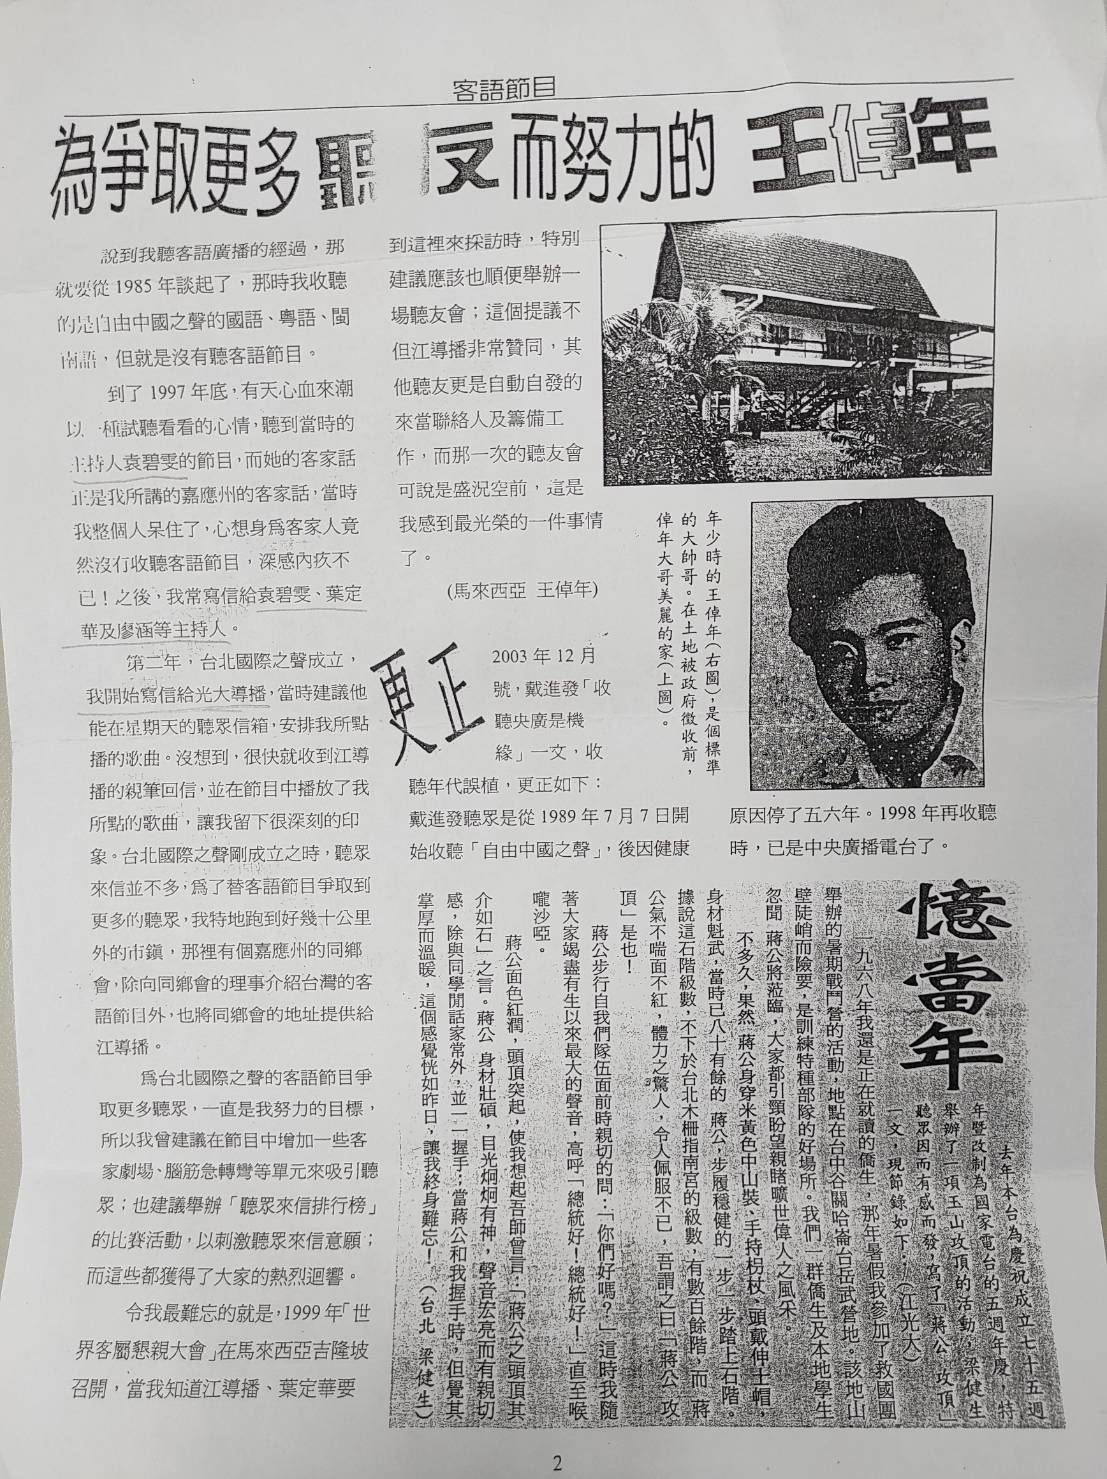 客語節目
為爭取更多聽友而努力的王倬年
說到我聽客語廣播的經過，那
就要從1985年談起了，那時我收聽
的是自由中國之聲的國語、粵語、閩
南語，但就是沒有聽客語節目。
到了1997年底，有天心血來潮
以一種試聽看看的心情，聽到當時的
主持人袁碧雯的節目，而她的客家話
正是我所講的嘉應州的客家話，當時
我整個人呆住了，心想身為客家人竟
然沒有收聽客語節目，深感內疚不
已！之後，我常寫信給袁碧雯、葉定
華及廖涵等主持人。
第二年，台北國際之聲成立，
我開始寫信給光大導播，當時建議他
能在星期天的聽眾信箱，安排我所點
播的歌曲。沒想到，很快就收到江導
播的親筆回信，並在節目中播放了我
所點的歌曲，讓我留下很深刻的印
象。台北國際之聲剛成立之時，聽眾
來信並不多，為了替客語節目爭取到
更多的聽眾，我特地跑到好幾十公里
外的市鎮，那裡有個嘉應州的同鄉
會，除向同鄉會的理事介紹台灣的客
語節目外，也將同鄉會的地址提供給
江導播。
為台北國際之聲的客語節目爭
取更多聽眾，一直是我努力的目標，
所以我曾建議在節目中增加一些客
家劇場、腦筋急轉彎等單元來吸引聽
眾；也建議舉辦「聽眾來信排行榜」
的比賽活動，以刺激聽眾來信意願；
而這些都獲得了大家的熱烈迴響。
令我最難忘的就是，1999年「世
界客屬懇親大會」在馬來西亞吉隆坡
召開，當我知道江導播、葉定華要
到這裡來採訪時，特別
建議應該也順便舉辦一
場聽友會；這個提議不
但江導播非常贊同，其
他聽友更是自動自發的
來當聯絡人及籌備工
作，而那一次的聽友會
可說是盛況空前，這是
我感到最光榮的一件事情
了。
(馬來西亞 王倬年)
年少時的王倬年（右圖），是個標準
的大帥哥。在土地被政府徵收前，
倬年大哥美麗的家（上圖）。
更正
2003年12月
號，戴進發「收
聽央廣是機
緣」一文，收
聽年代誤植，更正如下：
戴進發聽眾是從1989年7月7日開
始收聽「自由中國之聲」，後因健康
原因停了五六年。1998年再收聽
時，已是中央廣播電台了。
憶當年
去年本台為慶祝成立七十五週
年暨改制為國家電台的五週年慶，特
舉辦了一項玉山攻頂的活動，梁健生
聽眾因而有感而發，寫了「蔣公 攻頂」
一文，現節錄如下：（江光大）
一九六八年我還是正在就讀的僑生，那年暑假我參加了救國團
舉辦的暑期戰鬥營的活動，地點在台中谷關哈崙台岳武營地。該地山
壁陡峭而險要，是訓練特種部隊的好場所。我們一群僑生及本地學生
忽聞 蔣公將蒞臨，大家都引頸盼望親睹曠世偉人之風采。
不多久，果然 蔣公身穿米黃色中山裝、手持柺杖、頭戴伸士帽，
身材魁武，當時已八十有餘的 蔣公，步履穩健的一步一步踏上石階。
據說這石階級數，不下於台北木柵指南宮的級數，有數百餘階，而 蔣
公氣不喘面不紅，體力之驚人，令人佩服不已，吾謂之曰「蔣公 攻
頂」是也！
蔣公步行自我們隊伍面前時親切的問：「你們好嗎？」這時我隨
著大家竭盡有生以來最大的聲音，高呼「總統好！總統好！」直至喉
嚨沙啞。
蔣公面色紅潤，頭頂突起，使我想起吾師曾言：「蔣公之頭頂其
介如石」之言。蔣公 身材壯碩，目光炯炯有神，聲音宏亮而有親切
感，除與同學閒話家常外，並一一握手；當蔣公和我握手時，但覺其
掌厚而溫暖，這個感覺恍如昨日，讓我終身難忘！（台北 梁健生）
2